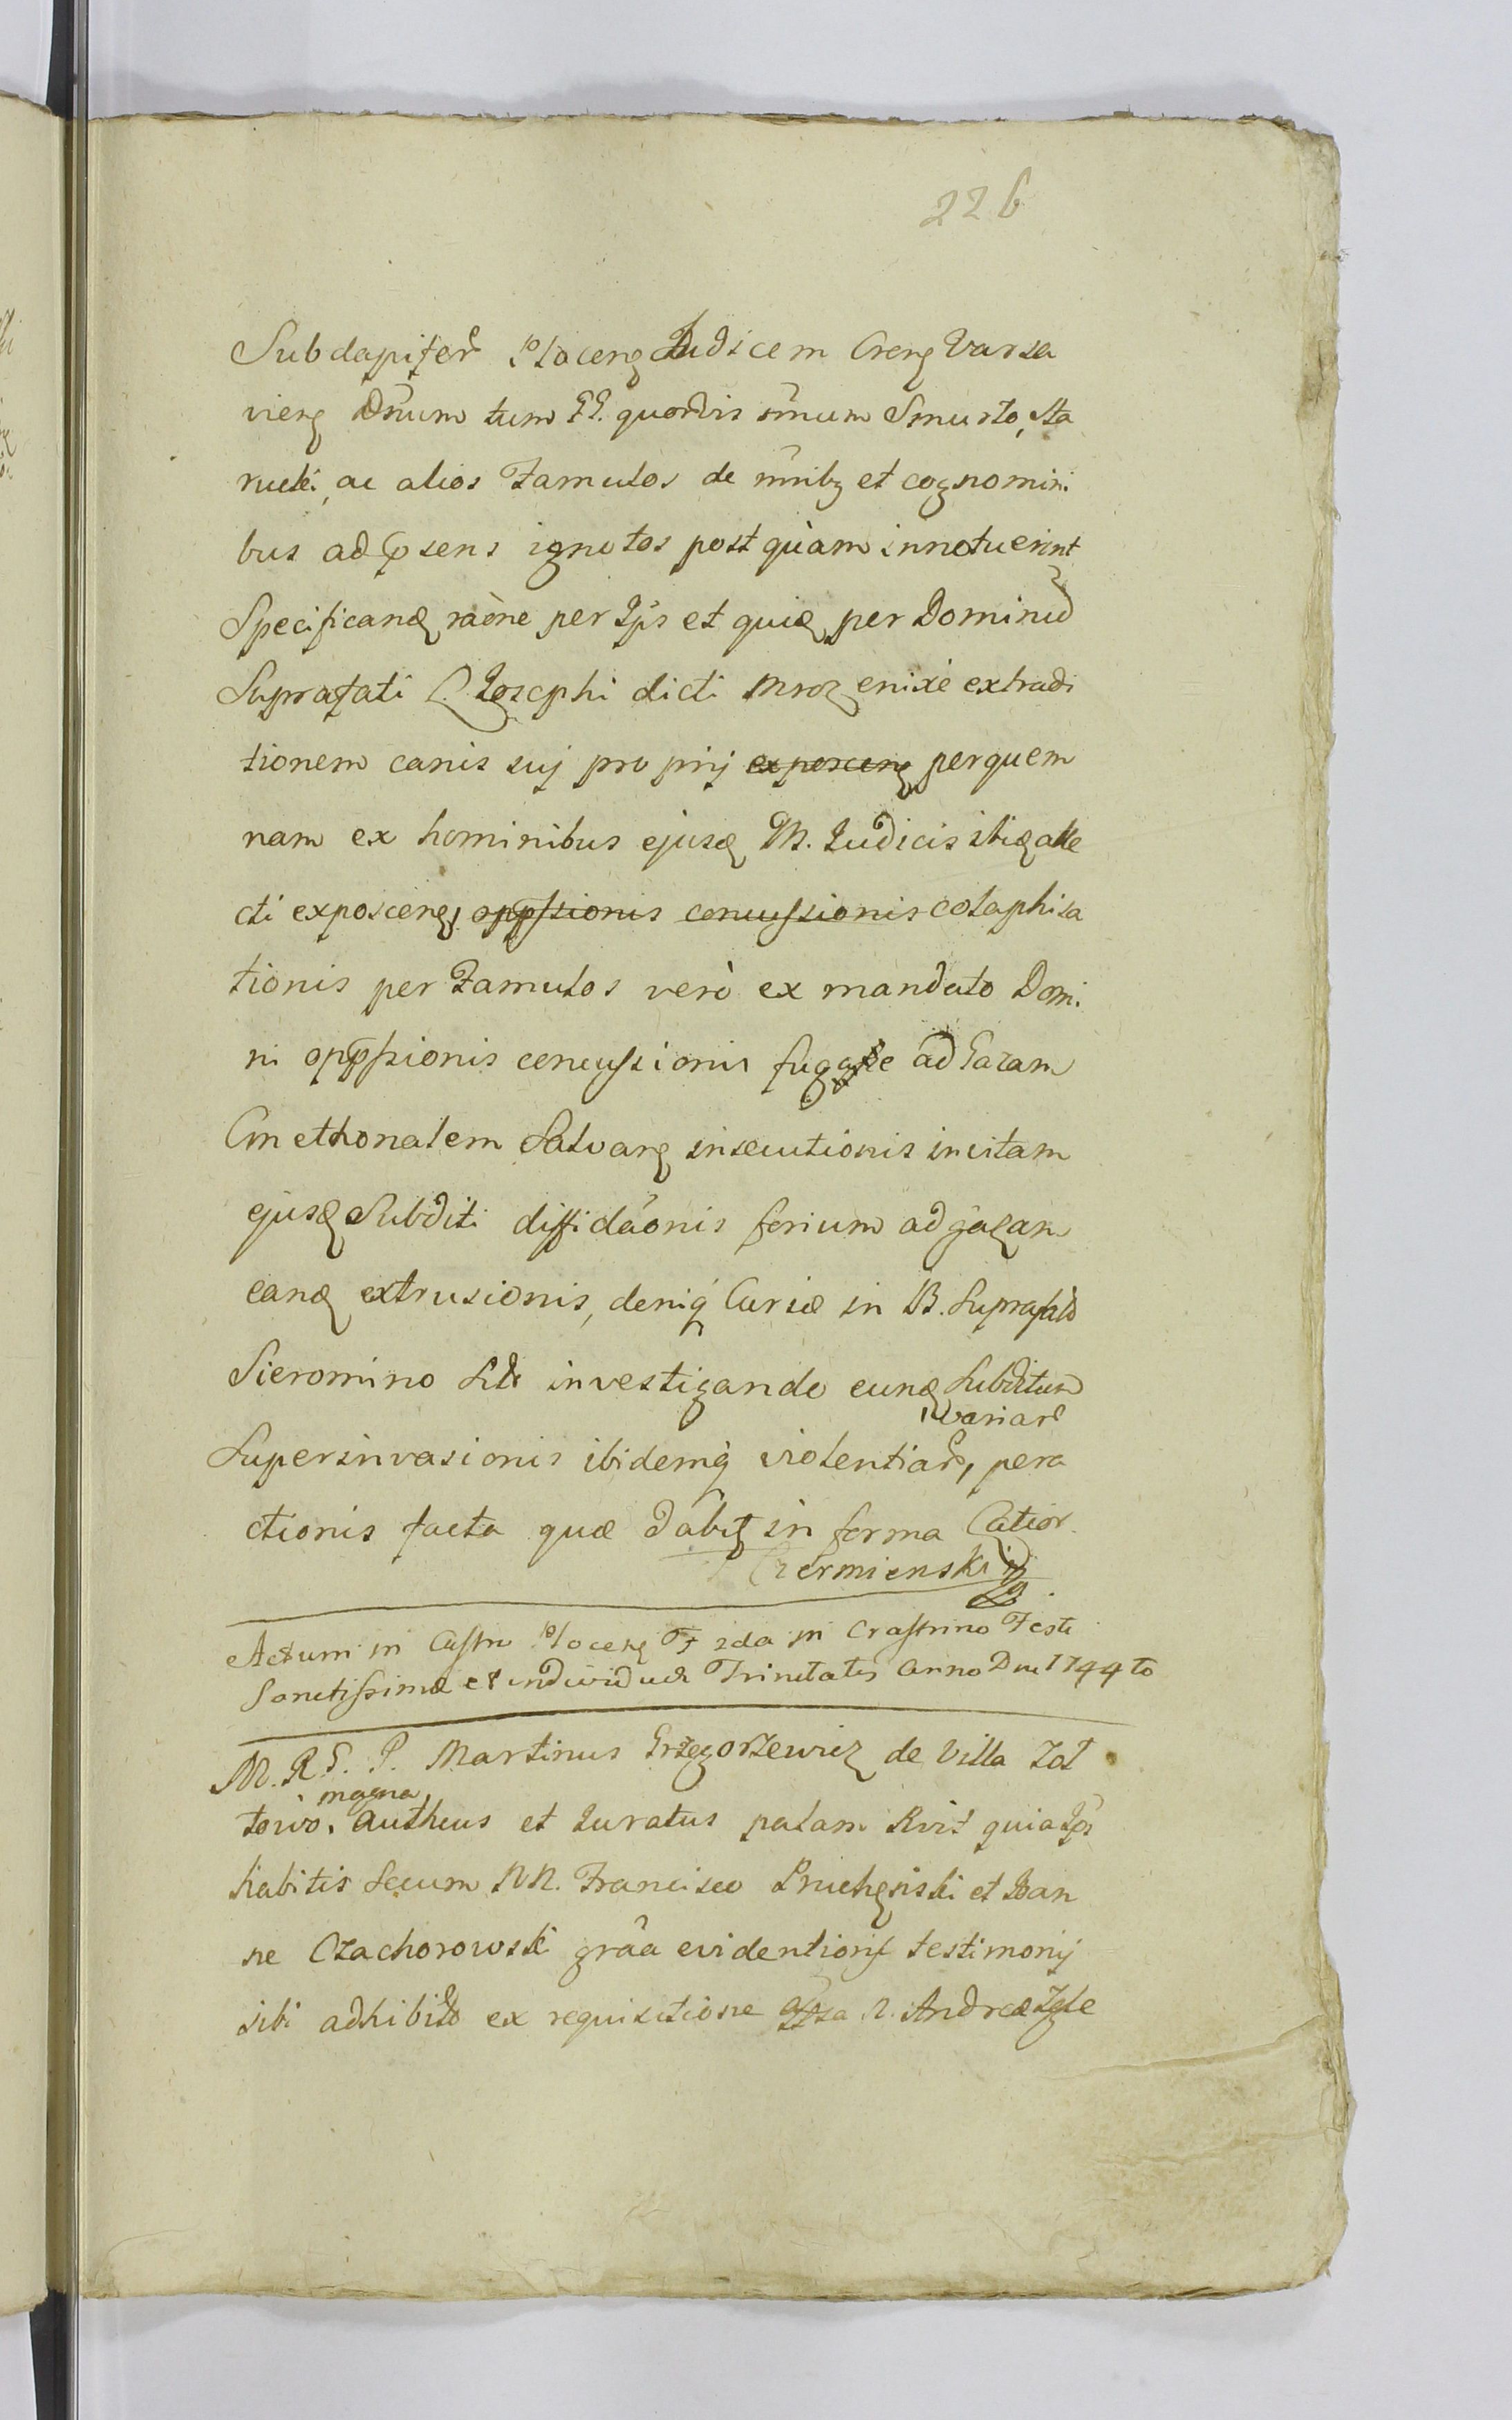 226
Subdapifer Ploceng Judicem Creng Varsa
vieng Dnum tum GG. quordvis nnum Smusto, Sta
rucki, ac alios Famulos de nnnibg et cognomini
bus ad psens ignotos post quàm innotuerint
Specificand raone per Jps et quid per Dominu
Suprafati L. Josephi dicti Mroz enixè extradi
tionem canis suj proprij exposceng perquem
nam ex hominibus ejusd M. Judicis ibid alle
cti exposceng, oppssionis concussionis colaphisa
tionis per Famulos verò ex mandato Domi
ni oppssionis concussionis fugase ad Gazam
Cmethonalem Salvang insecutionis in vitam
ejusd Subditi diffidaonis ferium ad gazam
eand extrusionis, deniq Curiæ in B. Suprafato
Sieromino investigando eund Subditum
variar
Superinvasionis ibidemq violentiar, pera
ctionis facta quæ dabit in forma Latior
Czermienski
Actum in Castro Ploceng F 2da in Crastino Festi
Sanctissimæ et individuæ Trinitatis Anno Dni 1744to
M. R. G. P. Martinus Grzegorzewicz de Villa Zot
towo, magna
Autheus et Juratus palam Rvit quia Jps
habitis Secum NN. Francisco et Joan
ne Czachorowski graa evidentioris testimonij
sibi adhibito ex requisitione N. Andreæ Zgle